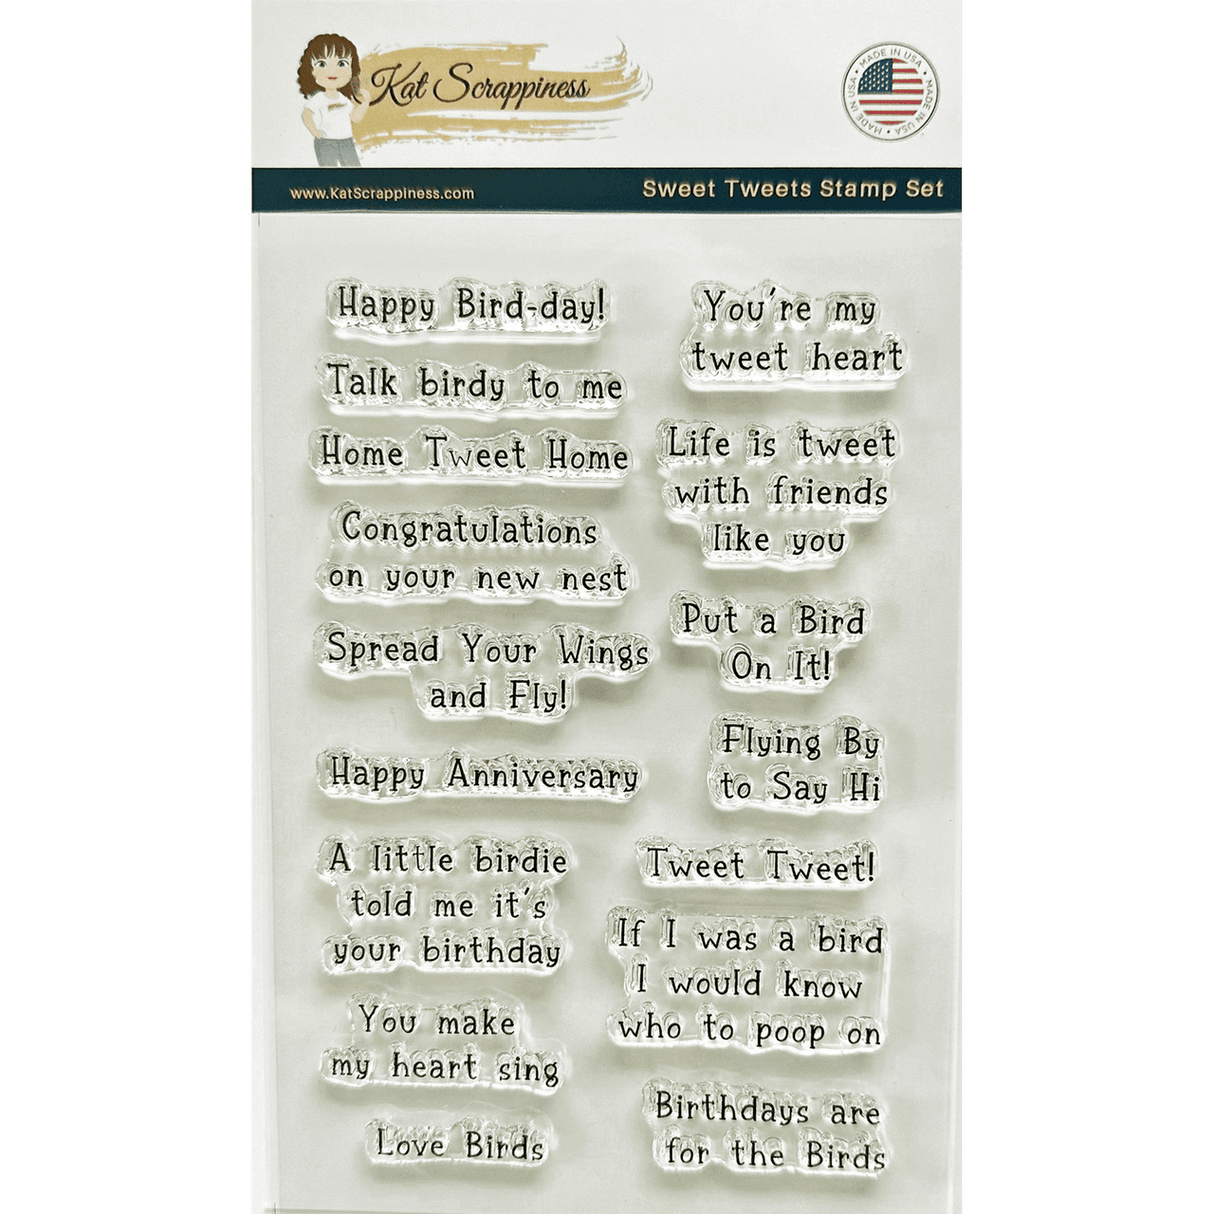 Kat Scrappiness
MADE IN USA • MADE IN USA • MADE IN USA •
www.KatScrappiness.com
Sweet Tweets Stamp Set
Happy Bird-day!
Talk birdy to me
Home Tweet Home
Congratulations
on your new nest
Spread Your Wings
and Fly!
Happy Anniversary
A little birdie
told me it's
your birthday
You make
my heart sing
Love Birds
You're my
tweet heart
Life is tweet
with friends
like you
Put a Bird
On It!
Flying By
to Say Hi
Tweet Tweet!
If I was a bird
I would know
who to poop on
Birthdays are
for the Birds